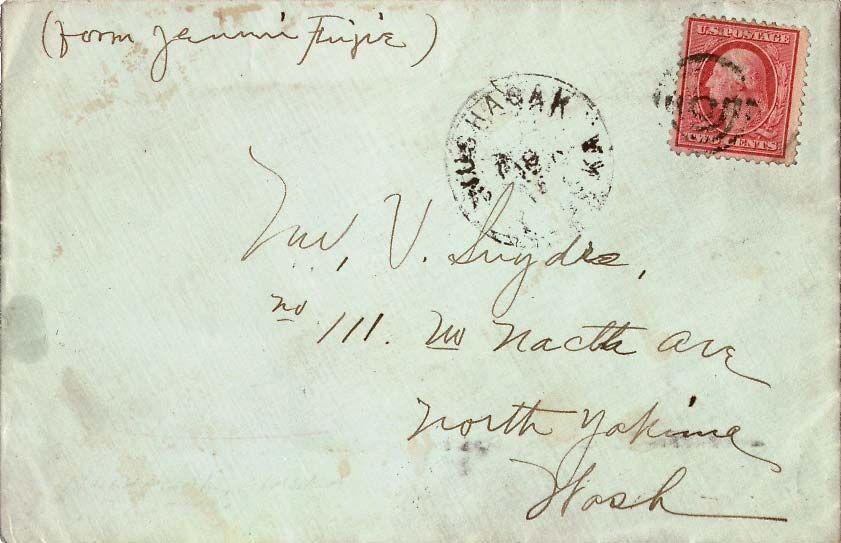 (Form Jennni Fujie)
U.S. POSTAGE
TWO CENTS
NUSHAGAK
Mr, V. Snyder,
no 111. No Nacth Ave
North Yakima
Wash